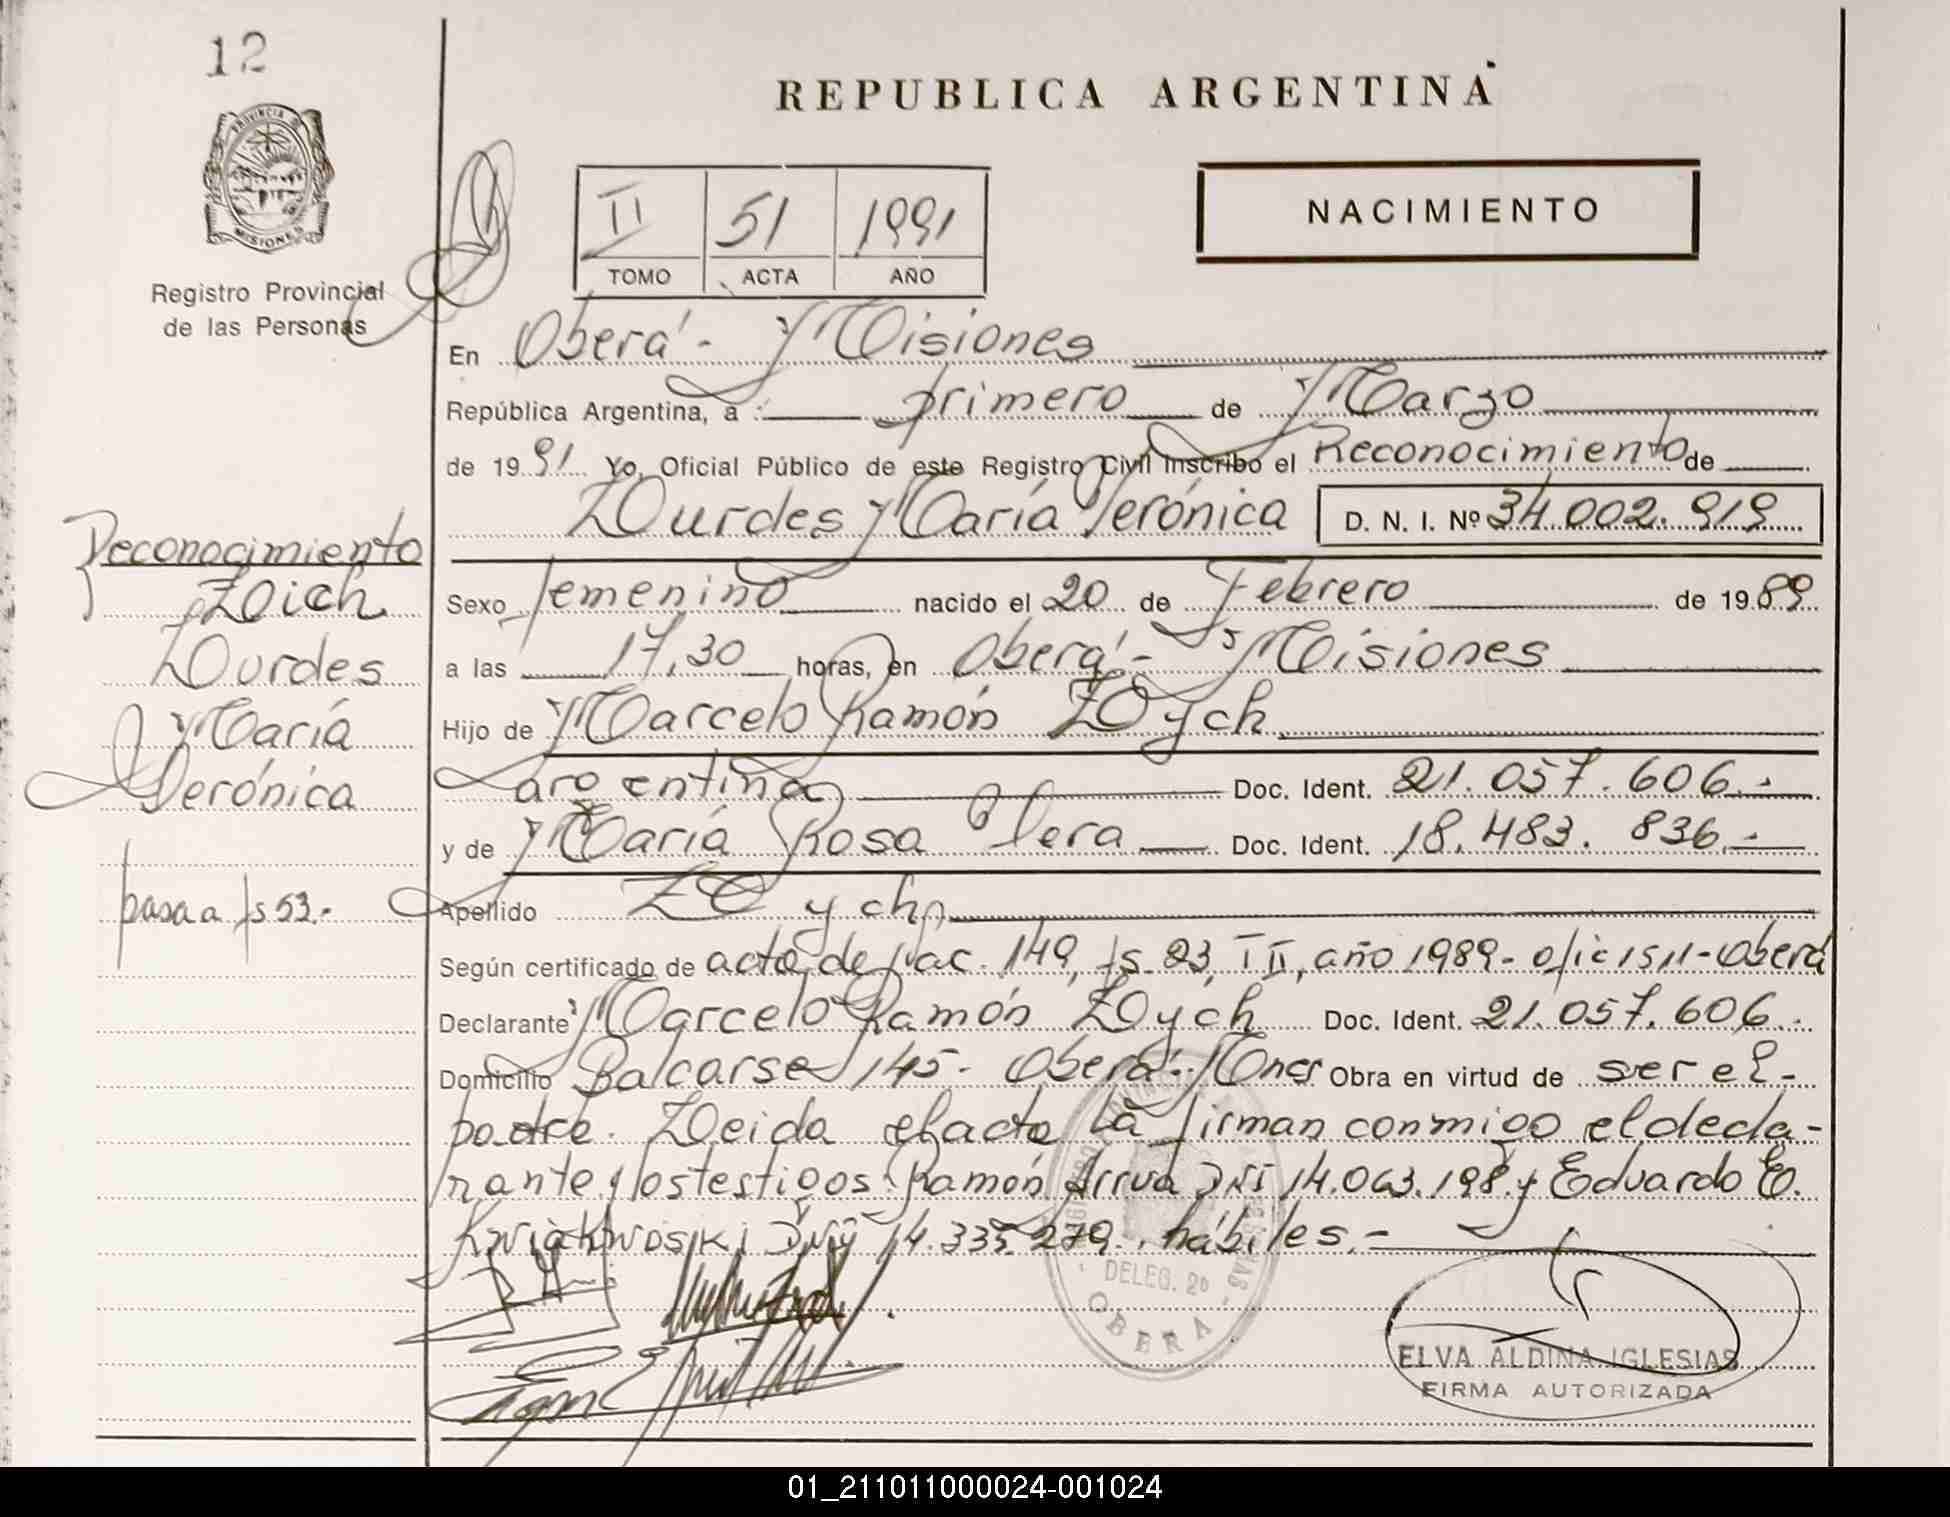 12
PROVINCIA DE
MISIONES
Registro Provincial
de las Personas
REPUBLICA ARGENTINA
II 51 1991
TOMO ACTA AÑO
NACIMIENTO
En Oberá - Misiones
República Argentina, a primero de Marzo
de 1991 Yo, Oficial Público de este Registro Civil inscribo el Reconocimiento de
Lourdes María Verónica D. N. I. Nº 34.002.919
Sexo femenino nacido el 20 de Febrero de 1989
a las 17,30 horas, en Oberá - Misiones
Hijo de Marcelo Ramón Zdych
argentina Doc. Ident. 21.057.606.-
y de María Rosa Vera Doc. Ident. 18.483.836.-
Apellido
Según certificado de acta de Nac. 149, fs. 23, T II, año 1989 - Oberá
Declarante Marcelo Ramón Doc. Ident. 21.057.606.-
Domicilio Balcarse 145 - Oberá - Mnes Obra en virtud de ser el -
padre. Leida el acta la firman conmigo el decla-
rante y los testigos Ramón Arrua DNI 14.063.198 y Eduardo E.
Kwiatkwoski DNI 14.335.279, hábiles.-
Reconocimiento
Lourdes
María
Verónica
pasa a fs 53.-
DELEG. 2º
OBERA
ELVA ALDINA IGLESIAS
FIRMA AUTORIZADA
01_211011000024-001024